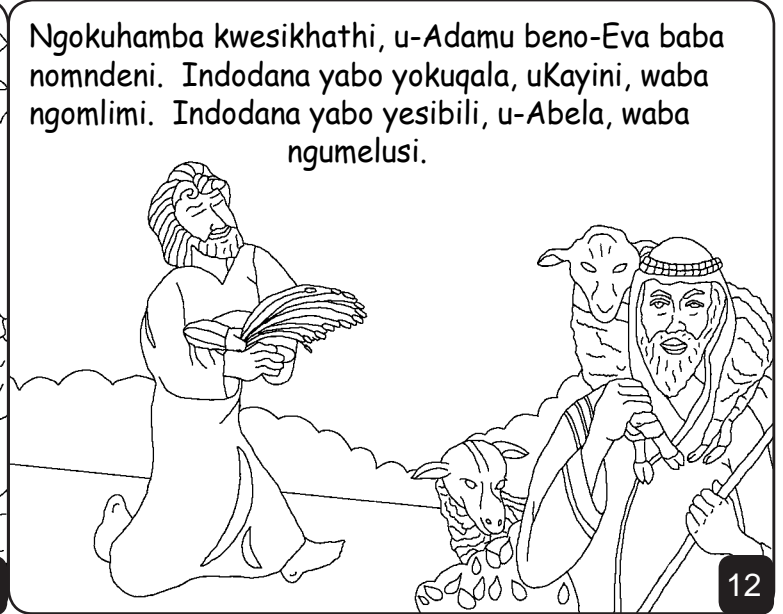 Ngokuhamba kwesikhathi, u-Adamu beno-Eva baba
nomndeni.  Indodana yabo yokuqala, uKayini, waba
ngomlimi.  Indodana yabo yesibili, u-Abela, waba
ngumelusi.
12